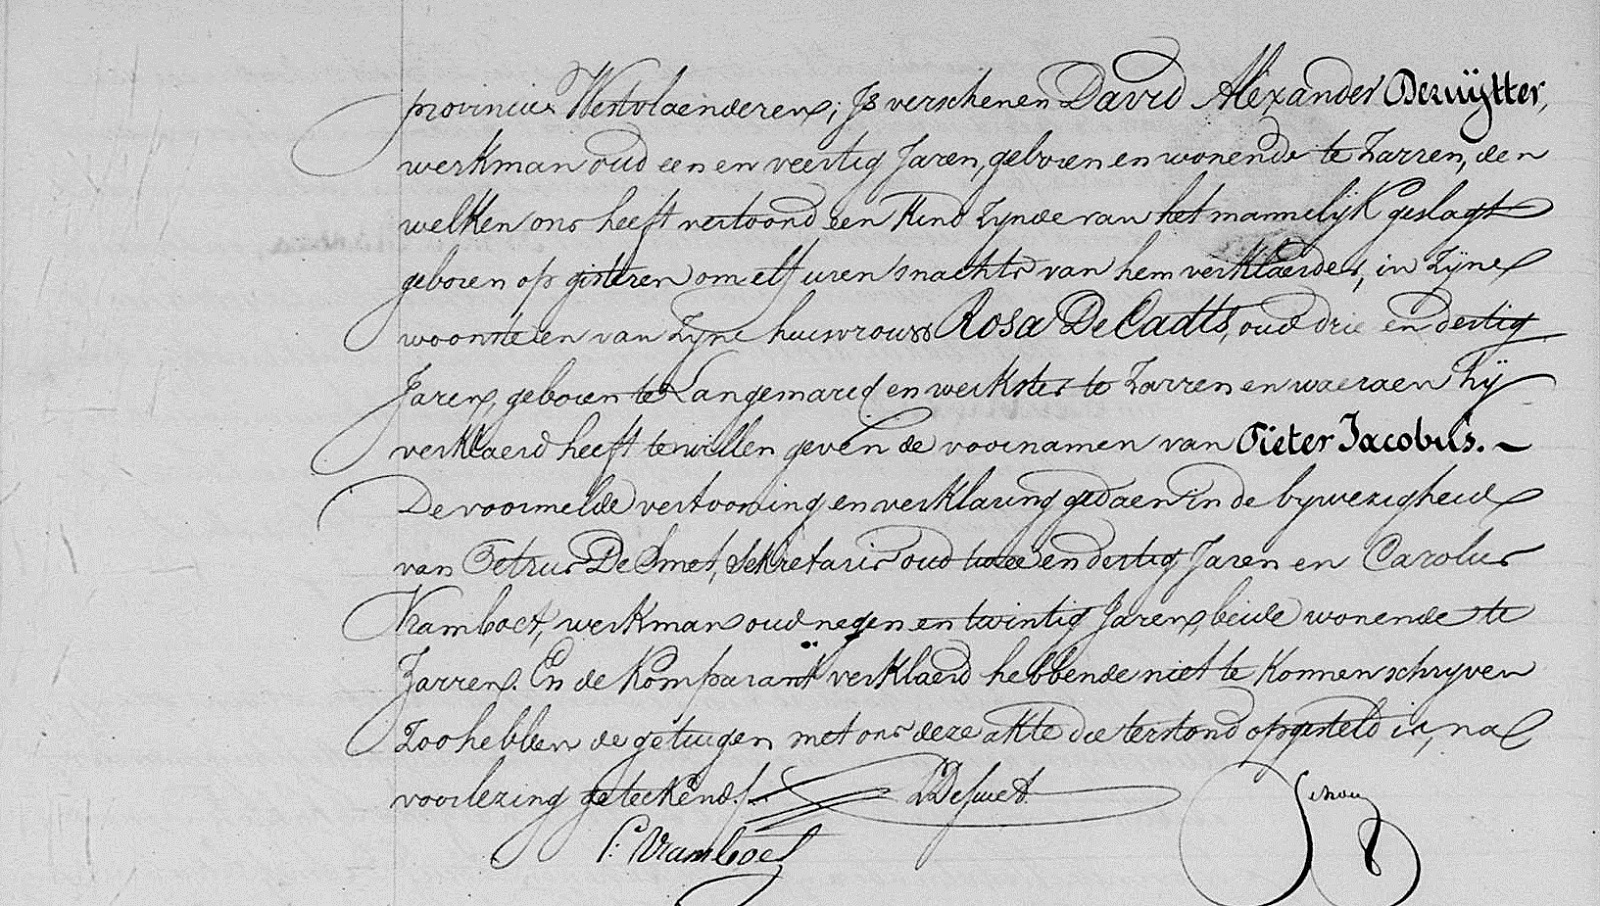 provincie Westvlaenderen; Is verschenen David Alexander Deruÿtter,
werkman oud een en veertig Jaren, geboren en wonende te Zarren, den
welken ons heeft vertoond een Kind zynde van het mannelijk geslagt
geboren op gisteren om elf uren 'snachts van hem verklaerder, in zÿne
woonste en van zyne huisvrouw Rosa De Cadts, oud drie en dertig
Jaren, geboren te Langemarcq en werkster te Zarren en waeraen hÿ
verklaerd heeft te willen geven de voornamen van Piëter Jacobus. —
De voormelde vertooning en verklaring gedaen in de bywezigheid
van Petrus De Smet, Sekretaris oud twee en dertig Jaren en Carolus
Vramboet, werkman oud negen en twintig Jaren, beide wonende te
Zarren. En de Komparant verklaerd hebbende niet te konnen schryven
Zoo hebben de getuigen met ons deze akte die terstond opgesteld is, na
voorlezing geteekend.
PDeSmet
C: Vramboet